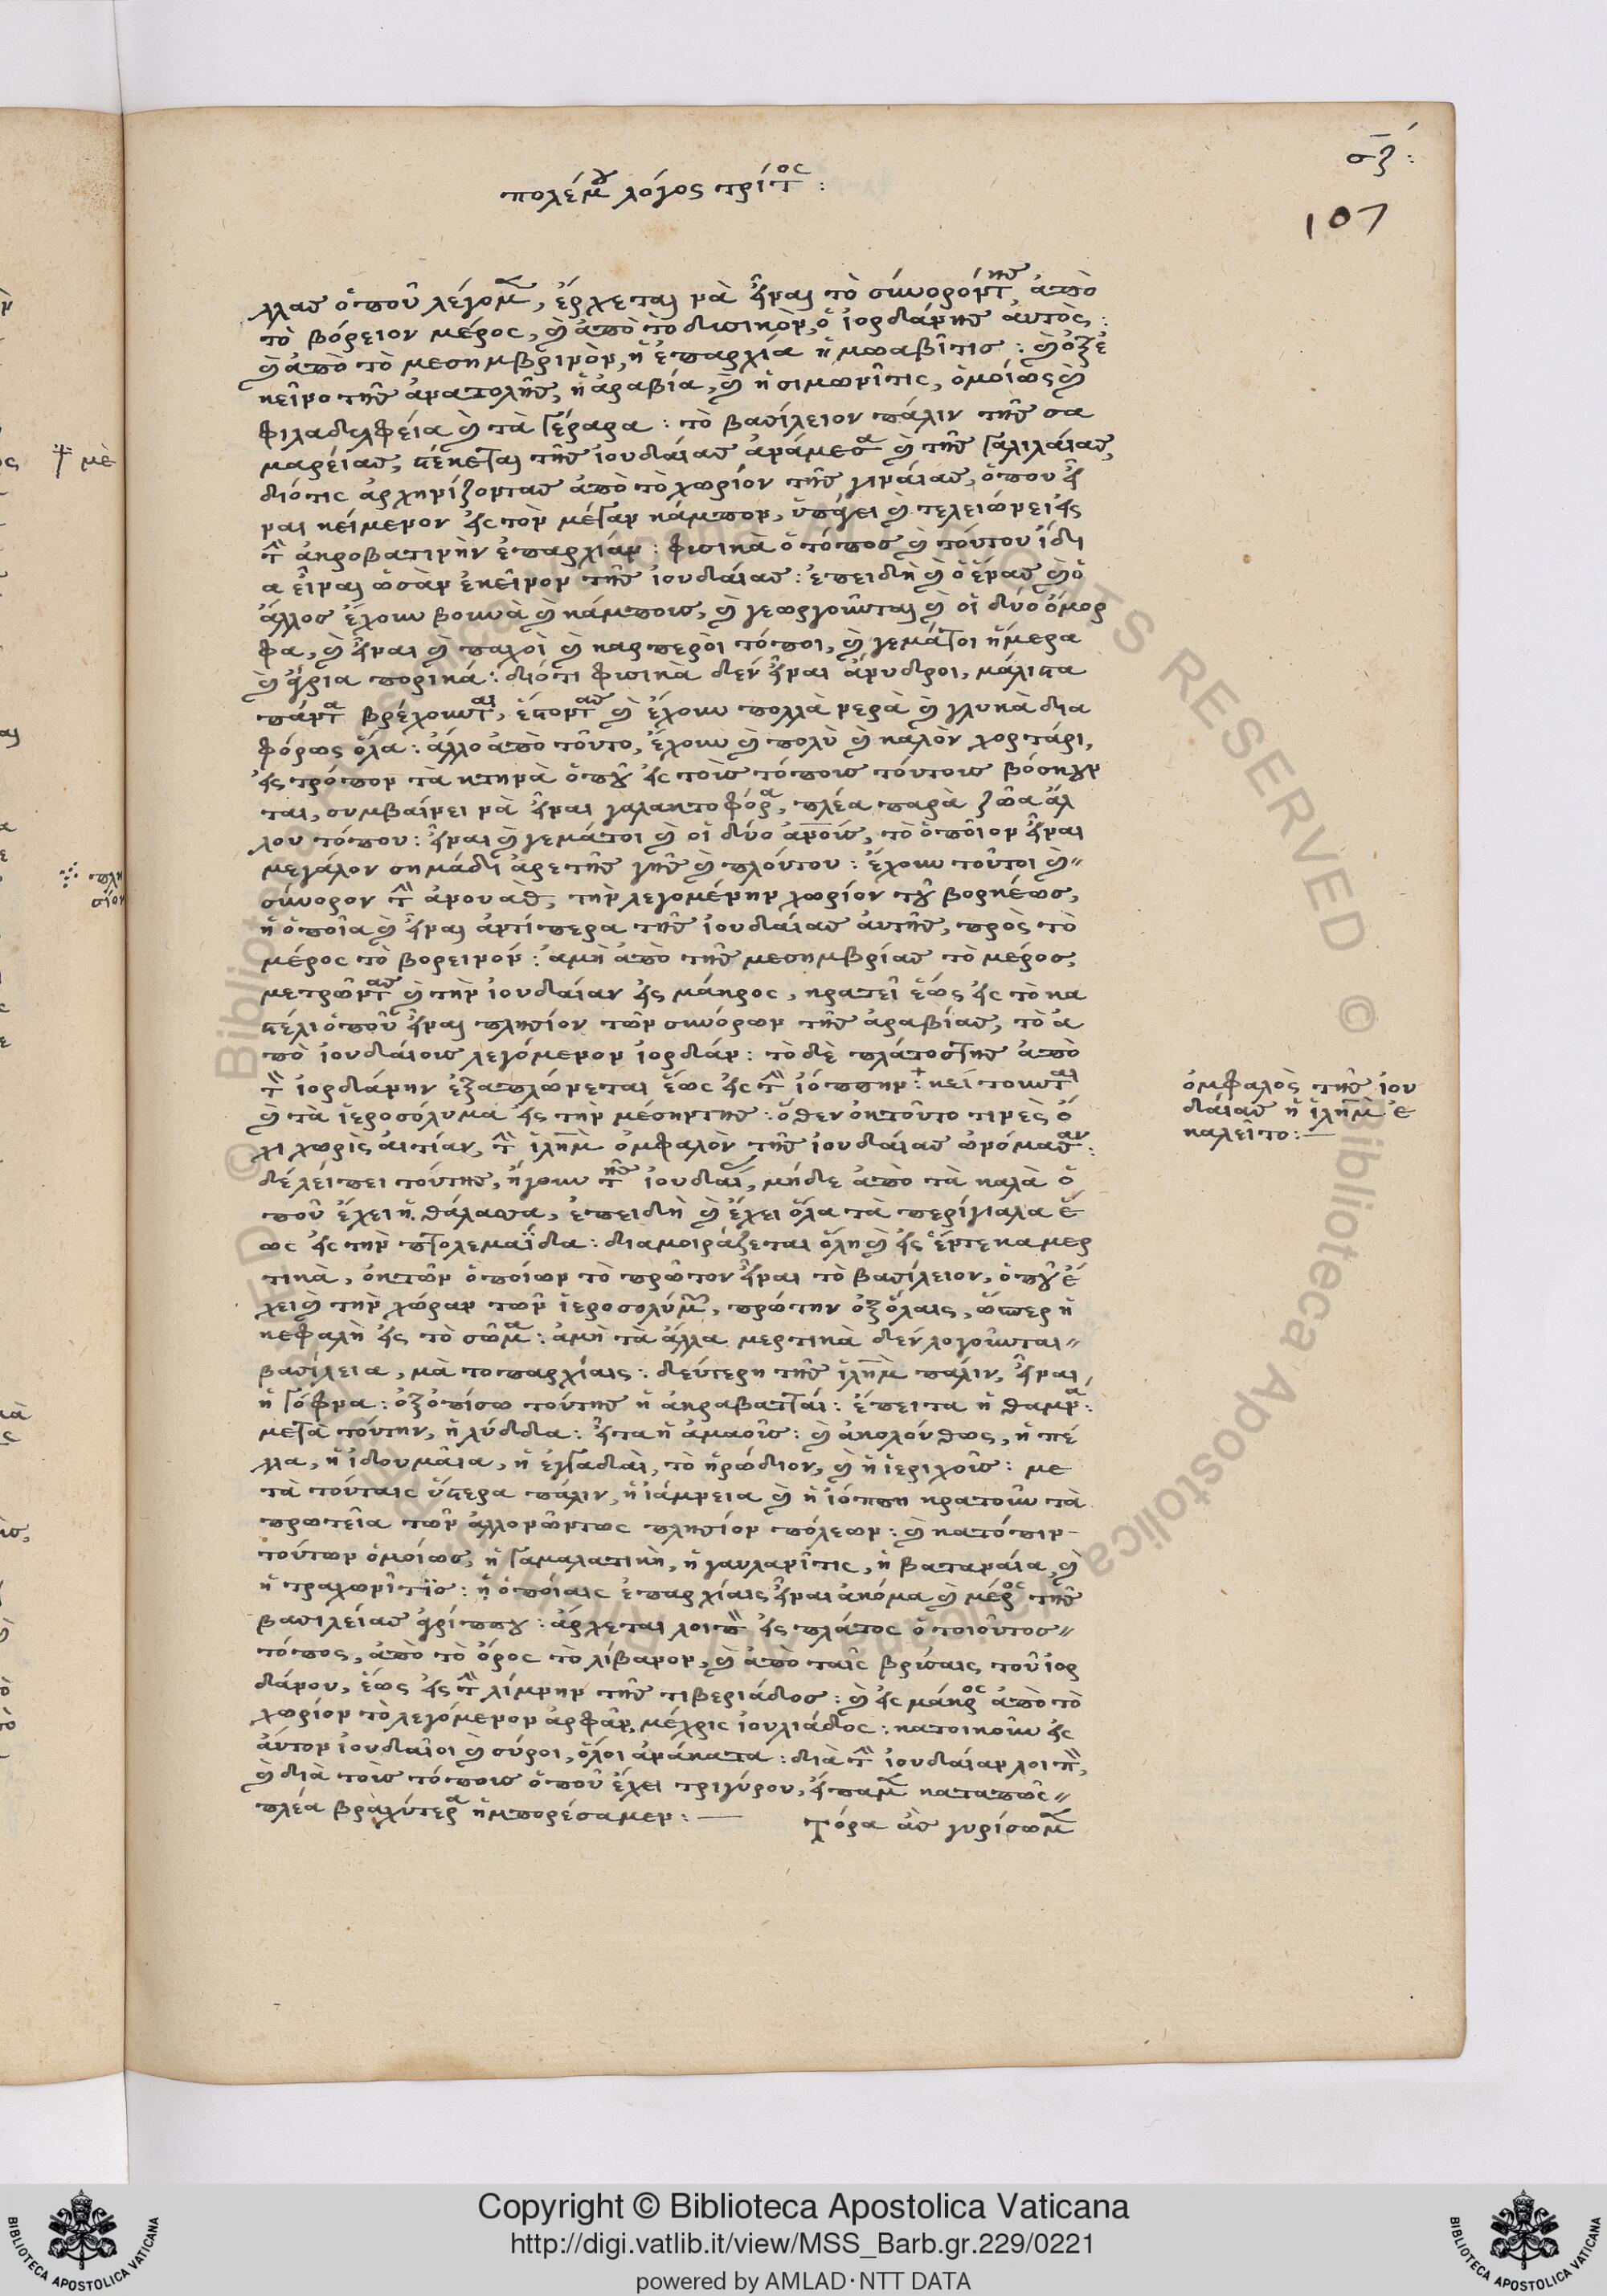 σζ΄:
πολέμου λόγος τρίτος:
107
λλας ὁποῦ λέγομεν, ἔρχεται νὰ εἶναι τὸ σύνορόν της ἀπὸ
τὸ βόρειον μέρος, καὶ ἀπὸ τὸ δυσικὸν, ὁ ἰορδάνης ἀυτὸς:
καὶ ἀπὸ τὸ μεσημβρινὸν, ἡ ἐπαρχία ἡ μωαβῖτις: καὶ ὀξ ἐ
κεῖνο τῆς ἀνατολῆς, ἡ ἀραβία, καὶ ἡ σιμωνῖτις, ὁμοίως καὶ
φιλαδελφεία καὶ τὰ γέραρα: τὸ βασίλειον πάλιν τῆς σα
μαρείας, στέκεται τῆς ἰουδαίας ἀνάμεσα καὶ τῆς γαλιλαίας,
διότις ἀρχηνίζοντας ἀπὸ τὸ χωρίον τῆς γιναίας, ὁποῦ εἶ
ναι κείμενον εἰς τὸν μέγαν κάμπον, ὑπάγει καὶ τελειώνει εἰς
τὴν ἀκροβατινὴν ἐπαρχίαν: φυσικὰ ὁ τόπος καὶ τούτου ἴδι
α εἶναι ὡσὰν ἐκεῖνον τῆς ἰουδαίας: ἐπειδὴ καὶ ὁ ἕνας καὶ ὁ
ἄλλος ἔχουν βουνὰ καὶ κάμπους, καὶ γεωργοῦνται καὶ οἱ δύο ὄμορ
φα, καὶ εἶναι καὶ παχοὶ καὶ καρπεροὶ τόποι, καὶ γεμάτοι ἥμερα
καὶ ἄγρια πορικά: διότι φυσικὰ δὲν εἶναι ἄνυδροι, μάλιστα
πάντα βρέχουνται, ἔστοντας καὶ ἔχουν πολλὰ νερὰ καὶ γλυκὰ δια
φόρως ὅλα: ἄλλο ἀπὸ τοῦτο, ἔχουν καὶ πολὺ καὶ καλὸν χορτάρι,
εἰς τρόπον τὰ κτηνὰ ὁποῦ εἰς τοὺς τόπους τούτους βόσκουν
ται, συμβαίνει νὰ εἶναι γαλακτοφόρα, πλέα παρὰ ζῶα ἄλ
λου τόπου: εἶναι καὶ γεμάτοι καὶ οἱ δύο ἀνοὺς, τὸ ὁποῖον εἶναι
μεγάλον σημάδι ἀρετῆς γῆς καὶ πλούτου: ἔχουν τοῦτοι καὶ
σύνορον τὴν ἀνουὰθ, τὴν λεγομένην χωρίον τοῦ βορκέως,
ἡ ὁποῖα καὶ εἶναι ἀντίπερα τῆς ἰουδαίας ἀυτῆς, πρὸς τὸ
μέρος τὸ βορεινόν: ἀμὴ ἀπὸ τῆς μεσημβρίας τὸ μέρος,
μετρῶντας καὶ τὴν ἰουδαίαν εἰς μάκρος, κρατεῖ ἕως εἰς τὸ κα
στέλι ὁποῦ εἶναι πλησίον τῶν συνόρων τῆς ἀραβίας, τὸ ἀ
πὸ ἰουδαίους λεγόμενον ἰορδάν: τὸ δὲ πλάτος της ἀπὸ
τὴν ἰορδάνην ἐξαπλώνεται ἕως εἰς τὴν ἰόππην: κείτουνται
καὶ τὰ ἱεροσόλυμα εἰς τὴν μέσην της: ὅθεν ὀκ τοῦτο τινὲς ὄ
χι χωρὶς αἰτίαν, τὴν ἱλημ ὀμφαλὸν τῆς ἰουδαίας ὠνόμασαν:
δὲ λείπει τούτης, ἤγουν τῆς ἰουδαίας, μήδε ἀπὸ τὰ καλὰ ὁ
ποῦ ἔχει ἡ θάλασσα, ἐπειδὴ καὶ ἔχει ὅλα τὰ περίγιαλα ἕ
ως εἰς τὴν πτολεμαΐδα: διαμοιράζεται ὅλη καὶ εἰς ἕντεκα μερ
τικὰ, ὀκ τῶν ὁποίων τὸ πρῶτον εἶναι τὸ βασίλειον, ὁποῦ ἔ
χει καὶ τὴν χώραν τῶν ἱεροσολύμων, πρώτην ὀξ ὅλαις, ὥσπερ ἡ
κεφαλὴ εἰς τὸ σῶμα: ἀμὴ τὰ ἄλλα μερτικὰ δὲν λογοῦνται
βασίλεια, μὰ τοπαρχίαις: δεύτερη τῆς ἱλημ πάλιν, εἶναι
ἡ γόφνα: ὀξοπίσω τούτης ἡ ἀκραβατταί: ἔπειτα ἡ θάμνα:
μετὰ τούτην, ἡ λύδδα: εἶτα ἡ ἀμαοῦς: καὶ ἀκολούθως, ἡ πέ
λλα, ἡ ἰδουμαία, ἡ ἐγγαδδαὶ, τὸ ἡρώδιον, καὶ ἡ ἱεριχοῦς: με
τὰ τούταις ὕστερα πάλιν, ἡ ἰάμνεια καὶ ἡ ἰόππη κρατοῦν τὰ
πρωτεῖα τῶν ἀλλονῶντως πλησίον πόλεων: καὶ κατόπιν
τούτων ὁμοίως, ἡ γαμαλατικὴ, ἡ γαυλανῖτις, ἡ βαταναία, καὶ
ἡ τραχωνῖτις: ἡ ὁποίαις ἐπαρχίαις εἶναι ἀκόμα καὶ μέρος τῆς
βασιλείας ἀγρίππου: ἄρχεται λοιπὸν εἰς πλάτος ὁ τοιοῦτος
τόπος, ἀπὸ τὸ ὄρος τὸ λίβανον, καὶ ἀπὸ ταῖς βρύσαις τοῦ ἰορ
δάνου, ἕως εἰς τὴν λίμνην τῆς τιβεριάδος: καὶ εἰς μάκρος ἀπὸ τὸ
χωρίον τὸ λεγόμενον ἀρφᾶν, μέχρις ἰουλιάδος: κατοικοῦν εἰς
ἀυτὸν ἰουδαῖοι καὶ σύροι, ὅλοι ἀνάκατα: διὰ τὴν ἰουδαίαν λοιπὸν,
καὶ διὰ τοὺς τόπους ὁποῦ ἔχει τριγύρου, εἴπαμεν καταπῶς
πλέα βραχύτερα ἡμπορέσαμεν: Τόρα ἂς γυρίσωμεν
ὀμφαλὸς τῆς ἰου
δαίας ἡ ἱλημ ἐ
καλεῖτο:
μὲ
πλη
σίον
Copyright © Biblioteca Apostolica Vaticana
http://digi.vatlib.it/view/MSS_Barb.gr.229/0221
powered by AMLAD·NTT DATA
BIBLIOTECA APOSTOLICA VATICANA
BIBLIOTECA APOSTOLICA VATICANA